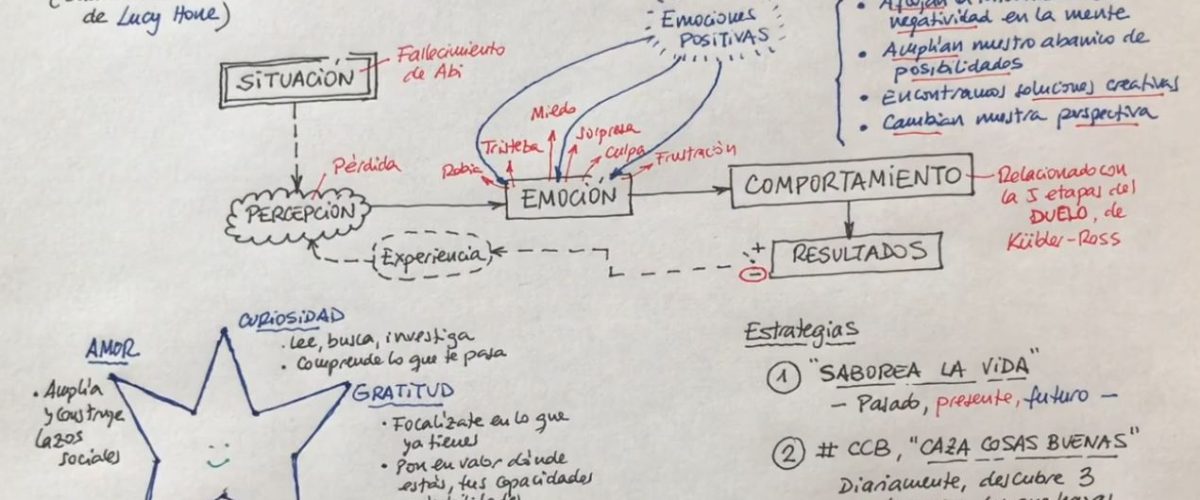 de Lucy Hone)
SITUACIÓN
Fallecimiento
de Abi
Emociones
POSITIVAS
negatividad en la mente
• Amplían nuestro abanico de
posibilidades
• Encontramos soluciones creativas
• Cambian nuestra perspectiva
Miedo
Tristeza
Sorpresa
Culpa
Rabia
Frustración
Pérdida
PERCEPCIÓN
EMOCIÓN
COMPORTAMIENTO
Relacionado con
la 5 etapas del
DUELO, de
Kübler-Ross
Experiencia
+
-
RESULTADOS
CURIOSIDAD
• Lee, busca, investiga
• Comprende lo que te pasa
AMOR
• Amplía
y construye
lazos
sociales
GRATITUD
• Focalízate en lo que
ya tienes
• Pon en valor dónde
estás, tus capacidades
Estrategias
1 "SABOREA LA VIDA"
- Pasado, presente, futuro -
2 # CCB, "CAZA COSAS BUENAS"
Diariamente, descubre 3